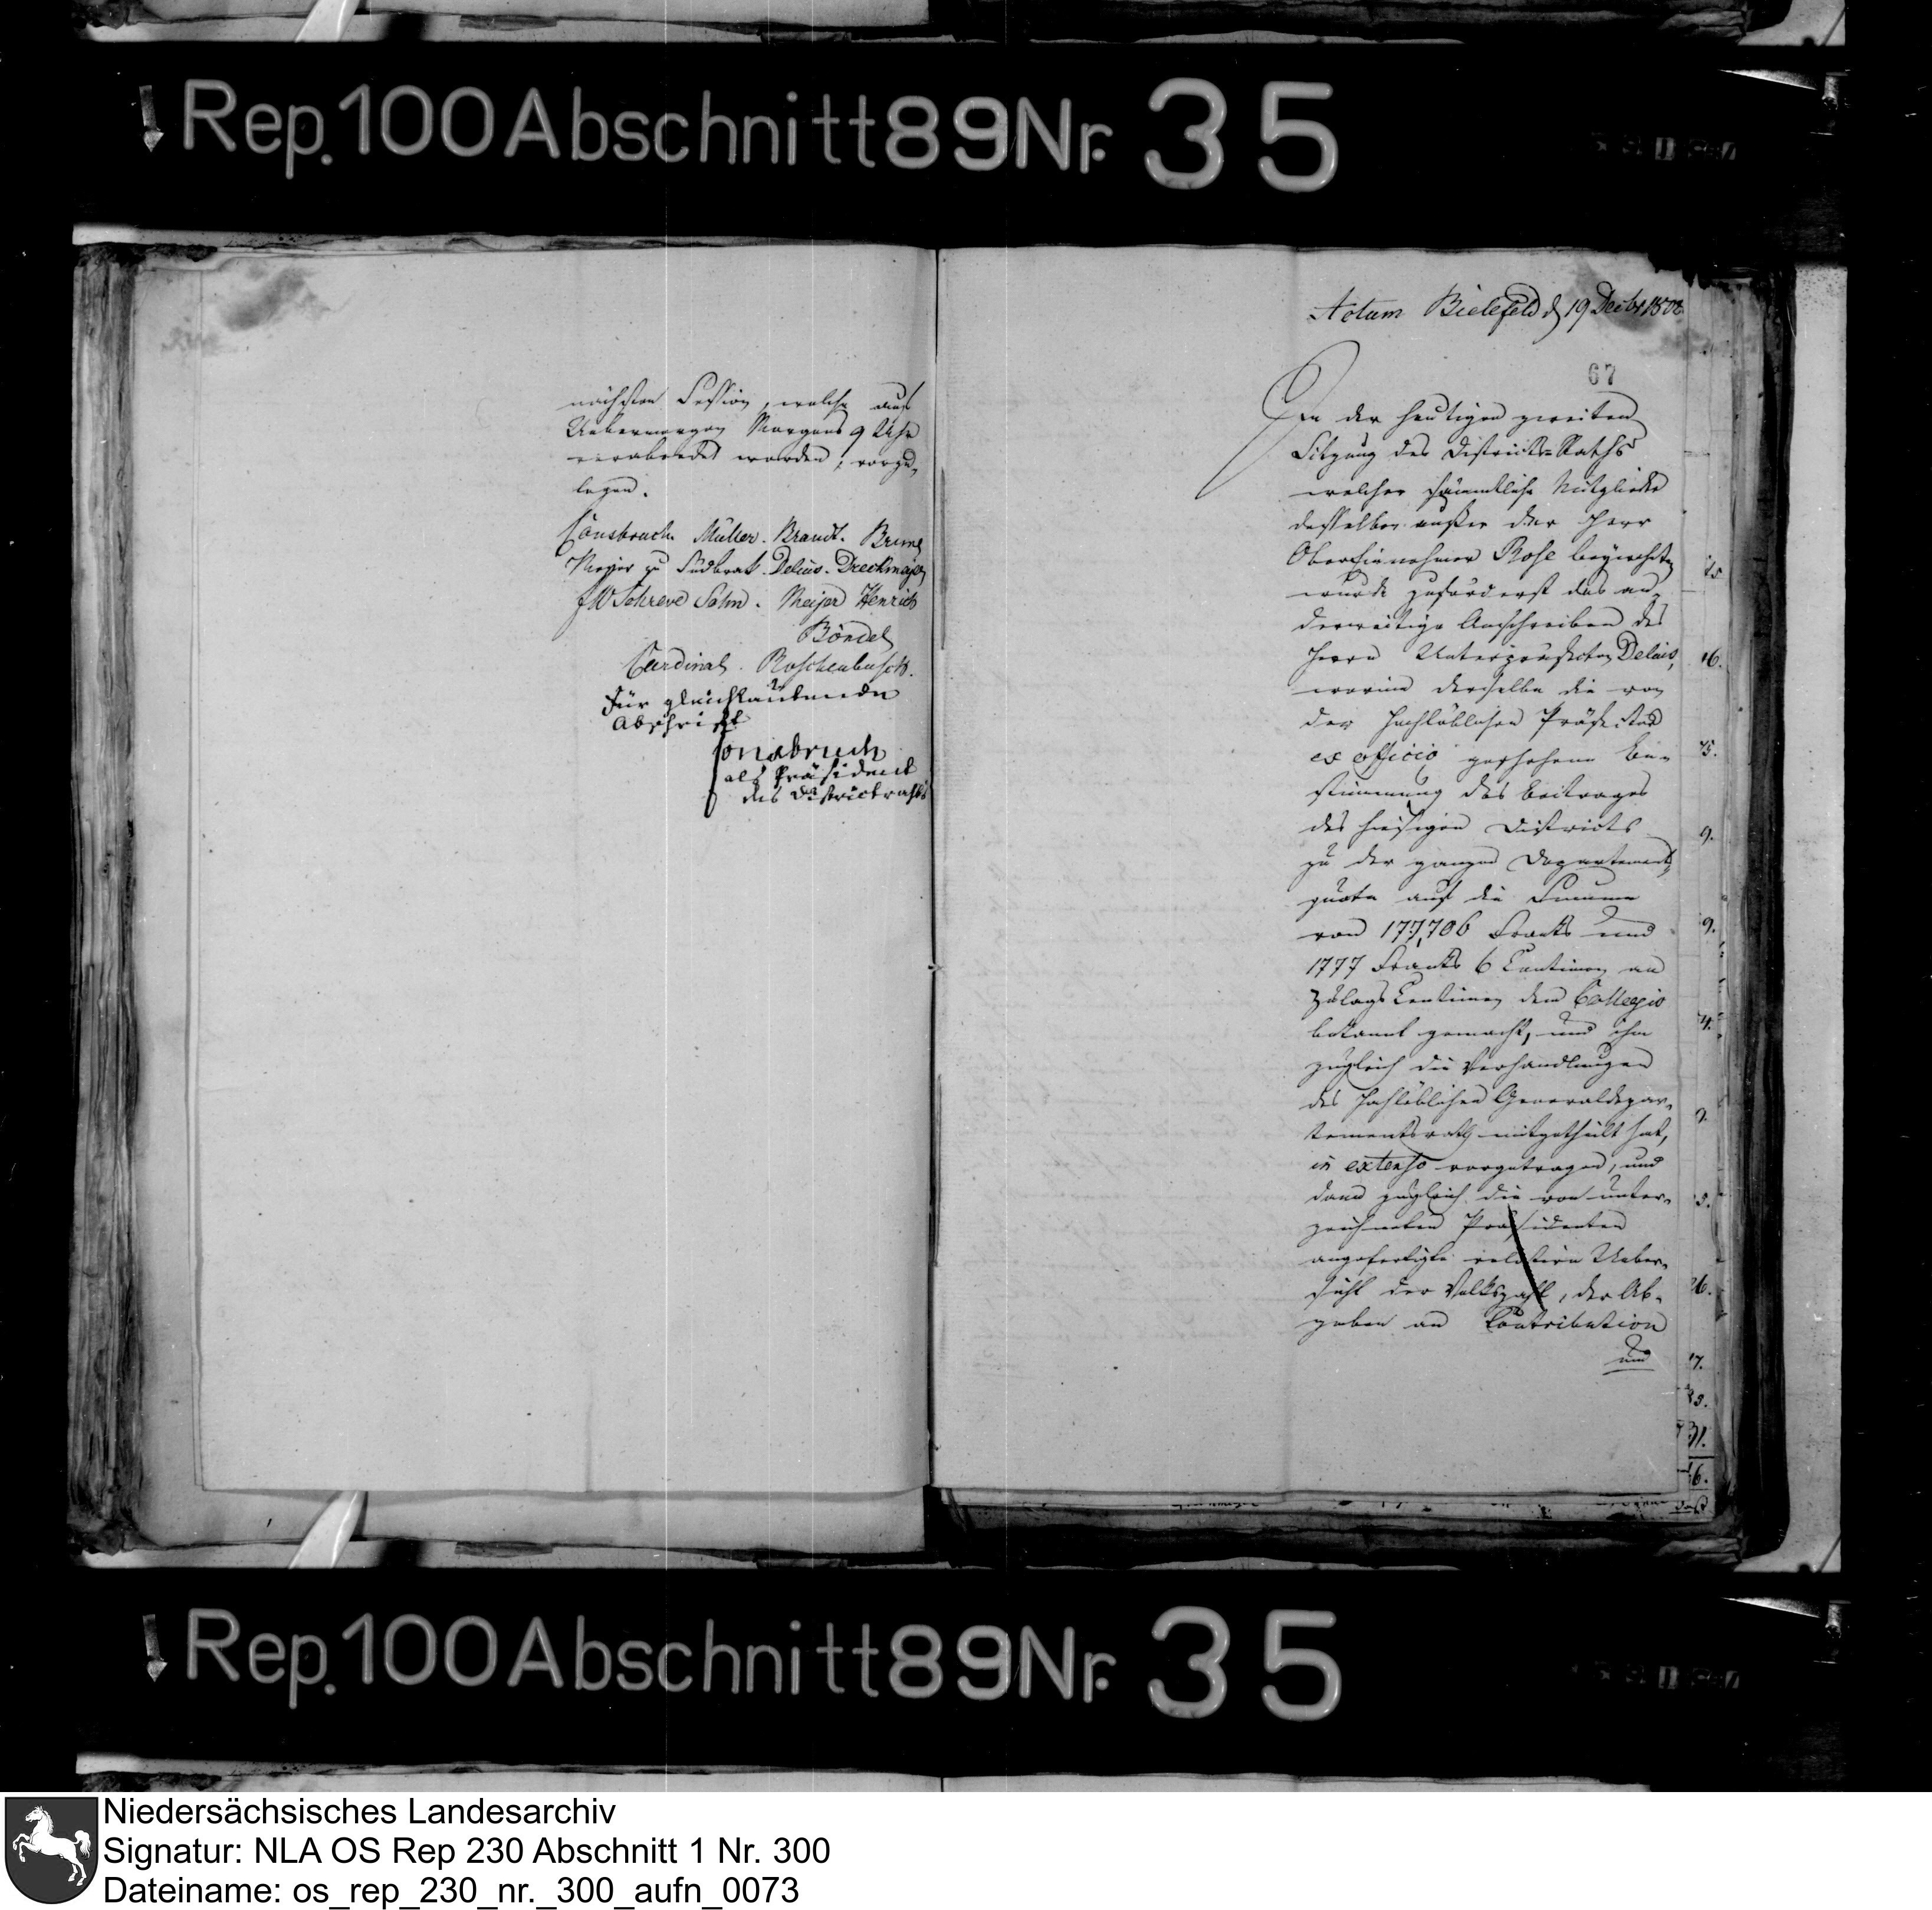 Rep. 100 Abschnitt 89 Nr. 35
nächsten Session, welche auf
Uebermorgen Morgens 9 Uhr
verabredet worden, vorzu-
legen.
Consbruch. Müller. Brandt. Brune
Meyer zu Südbrak. Delius. Dreckmeyer
FW Schreve Sohn. Meijer Henrich
Böndel
Cardinal. Roschenbusch.
Für gleichlautende
Abschrift
Consbruch
als Präsident
des Districtraths
Actum Bielefeld d 19 Decbr 1808
67
In der heutigen zweiten
Sitzung des Districts-Raths
welcher sämmtliche Mitglieder
desselben außer der Herr
Obereinnehmer Rose beywohnten
wurde zuförderst das an-
derweitige Anschreiben des
Herrn Unterpräfekten Delius,
worinn derselbe die von
der Hochlöblichen Präfectur
ex officio geschehene Be-
stimmung des Beitrages
des hiesigen Districts
zu der ganzen Departements
quote auf die Summe
von 177,706 Franks und
1777 Franks 6 Centimen an
Zulags Centimen dem Collegio
bekannt gemacht, und ihm
zugleich die Verhandlungen
des Hochlöblichen Generaldepar-
tementsrath mitgetheilt hat,
in extenso vorgetragen, und
dann zugleich die von unter-
zeichneten Präsidenten
angefertigte relative Ueber-
sicht der Volkszahl, der Ab-
gaben an Contribution
und
Rep. 100 Abschnitt 89 Nr. 35
Niedersächsisches Landesarchiv
Signatur: NLA OS Rep 230 Abschnitt 1 Nr. 300
Dateiname: os_rep_230_nr._300_aufn_0073